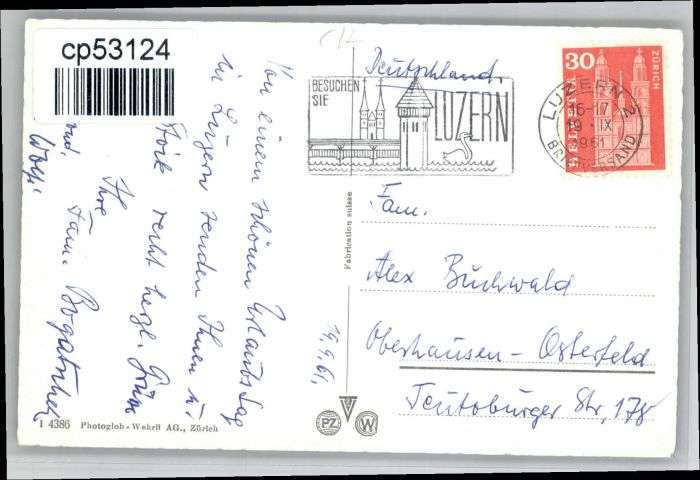 cp53124
Von einem schönen Urlaubstag
in Luzern senden Ihnen u.
recht herzl. Grüße
Ihre
Fam.
und
19.9.61.
I 4386 Photoglob-Wehrli AG., Zürich
Fabrication suisse
PZ
W
Deutschland.
BESUCHEN
SIE
LUZERN
30
HELVETIA
ZÜRICH
LUZERN 2
16-17
19.IX
1961
BRIEFVERSAND
Fam.
Alex Buchwald
Oberhausen-Osterfeld
Teutoburger Str, 178